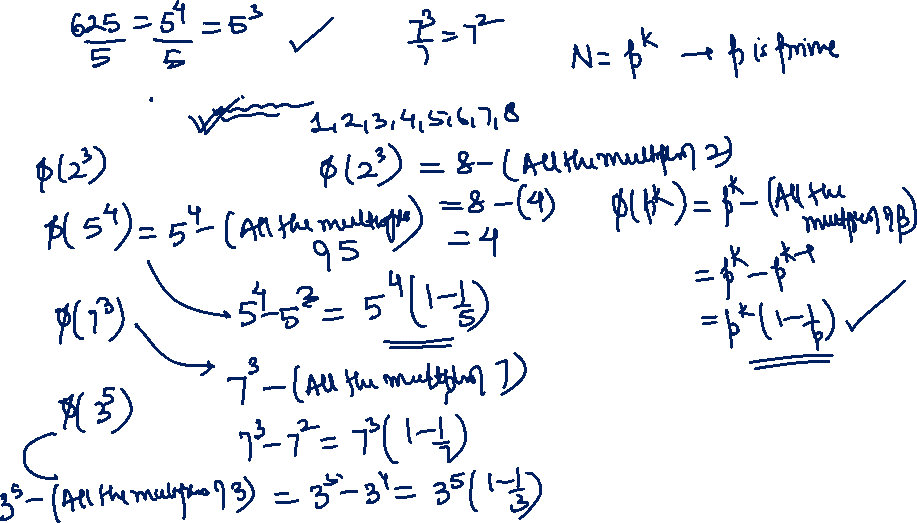 625/5 = 5^4/5 = 5^3 ✓
7^3/7 = 7^2
N = p^k → p is prime
1,2,3,4,5,6,7,8
φ(2^3)
φ(2^3) = 8 - (All the multiples of 2)
= 8 - (4)
= 4
φ(5^4) = 5^4 - (All the multiples of 5)
5^4 - 5^3 = 5^4(1 - 1/5)
φ(7^3)
7^3 - (All the multiples of 7)
7^3 - 7^2 = 7^3(1 - 1/7)
φ(3^5)
3^5 - (All the multiples of 3) = 3^5 - 3^4 = 3^5(1 - 1/3)
φ(p^k) = p^k - (All the multiples of p)
= p^k - p^k-1
= p^k(1 - 1/p) ✓